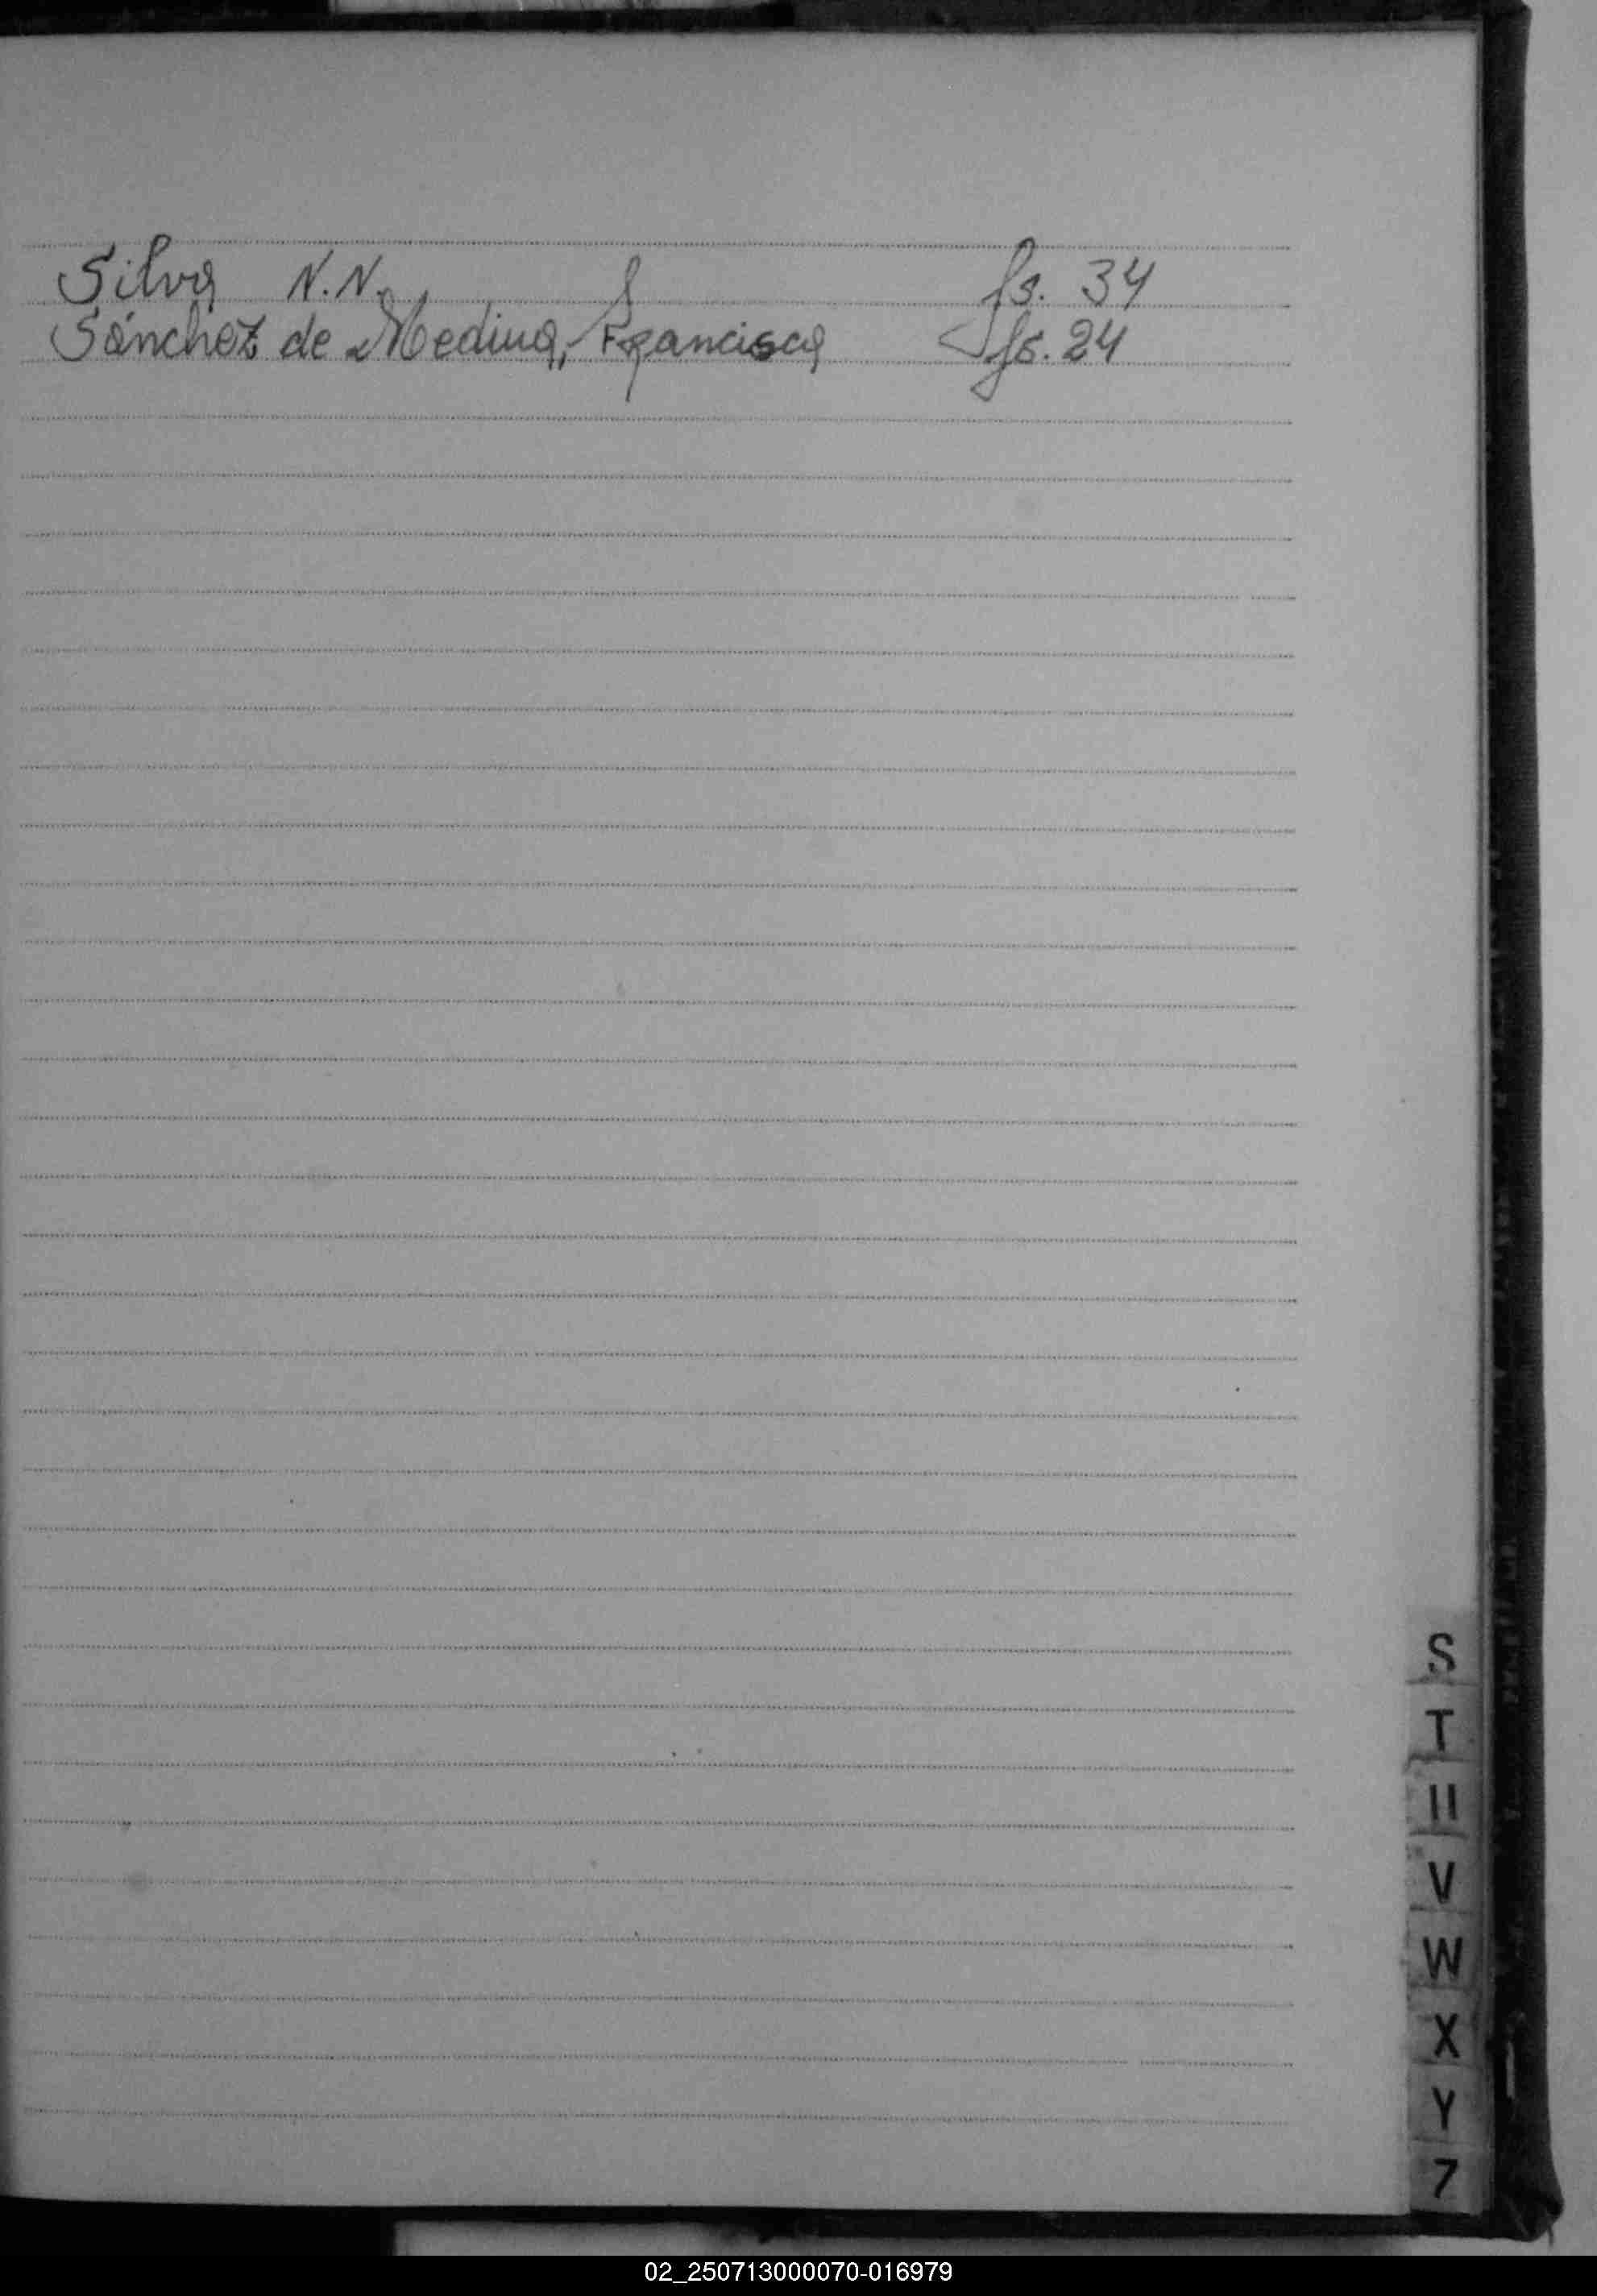 Silva N.N. fs. 34
Sánchez de Medina, Francisca fs. 24
S
T
U
V
W
X
Y
Z
02_250713000070-016979